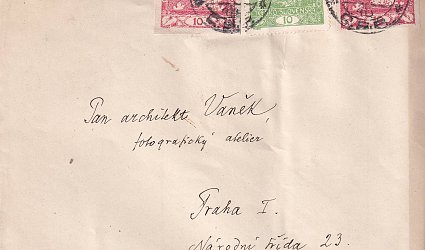 10
10
10
Pan architekt Vaněk,
fotografický atelier
Praha I.
Národní třída 23.